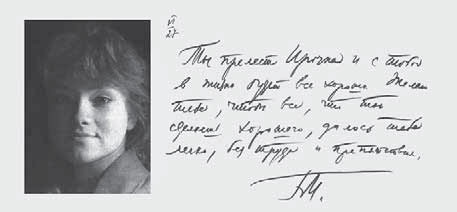 VI
27
Ты прелесть Ирочка и с тобой
в жизни будет все хорошо Желаю
тебе, чтобы все, что ты
сделаешь хорошего, далось тебе
легко, без труда и препятствий.